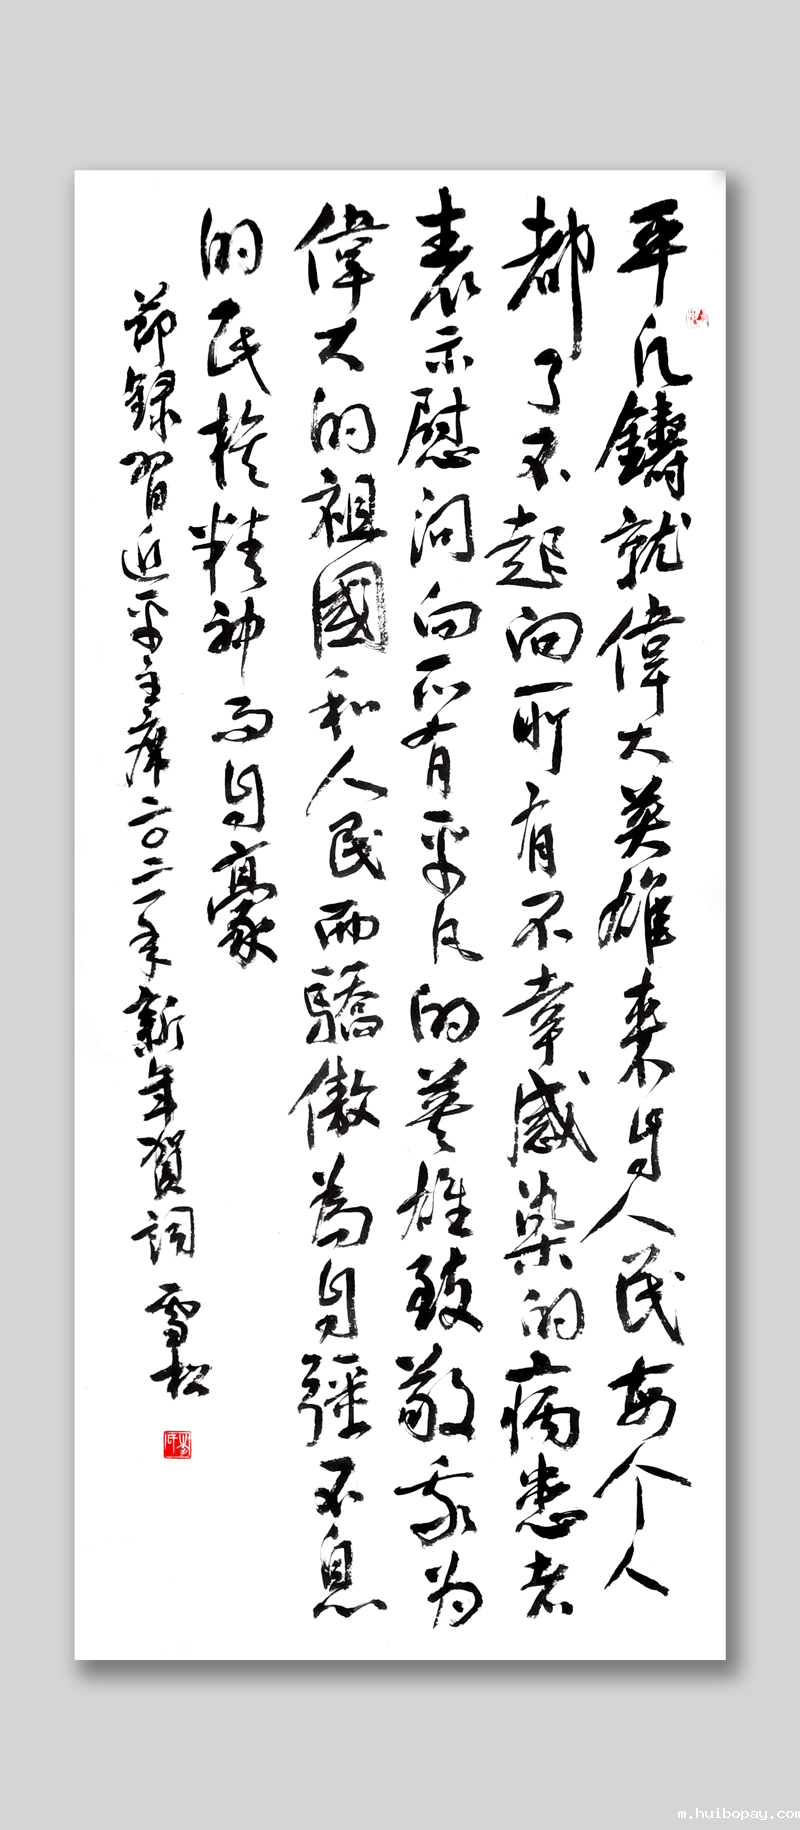 平凡鑄就偉大英雄来自人民每个人
都了不起向所有不幸感染的病患者
表示慰问向所有平凡的英雄致敬我为
偉大的祖國和人民而驕傲為自强不息
的民族精神而自豪
節録習近平主席二〇二一年新年賀詞 雪松
m.huibopay.com